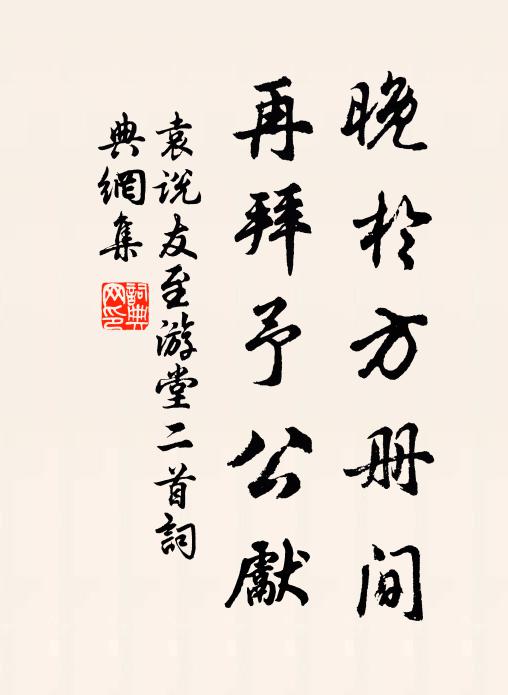 晚於方册间
再拜予公獻
袁说友至游堂二首詞
典網集
詞典
网印